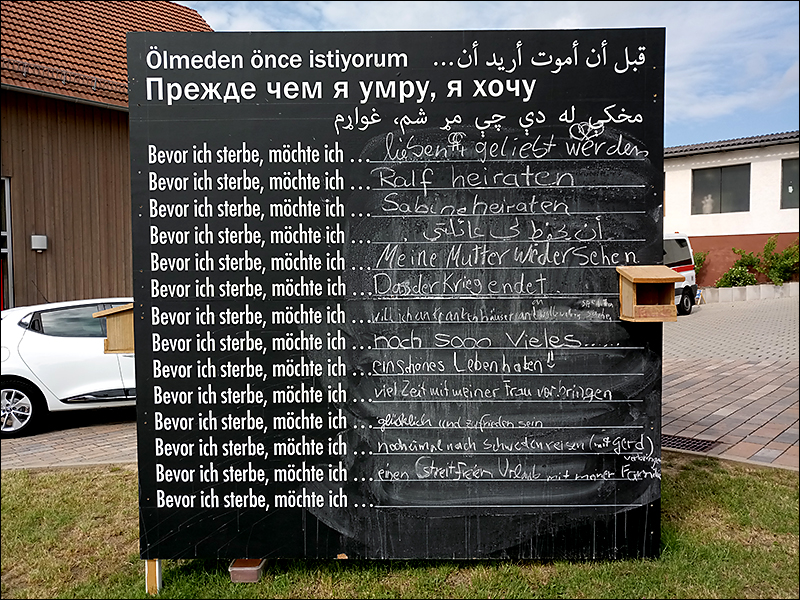 Ölmeden önce istiyorum
قبل أن أموت أريد أن...
Прежде чем я умру, я хочу
مخکې له دې چې مړ شم، غواړم
Bevor ich sterbe, möchte ich ... lieben geliebt werden
Bevor ich sterbe, möchte ich ... Ralf heiraten
Bevor ich sterbe, möchte ich ... Sabine heiraten
Bevor ich sterbe, möchte ich ... أن
Bevor ich sterbe, möchte ich ... Meine Mutter wieder Sehen
Bevor ich sterbe, möchte ich ... Das der Krieg endet
Bevor ich sterbe, möchte ich ... will ich an kranken häuser
Bevor ich sterbe, möchte ich ... noch sooo Vieles......
Bevor ich sterbe, möchte ich ... ein schönes Leben haben!!
Bevor ich sterbe, möchte ich ... viel Zeit mit meiner Frau verbringen
Bevor ich sterbe, möchte ich ... glücklich und zufrieden sein
Bevor ich sterbe, möchte ich ... nach Schweden reisen (mit Gerd)
Bevor ich sterbe, möchte ich ... einen Streitfreien Urlaub mit meiner Familie verbringen
Bevor ich sterbe, möchte ich ...